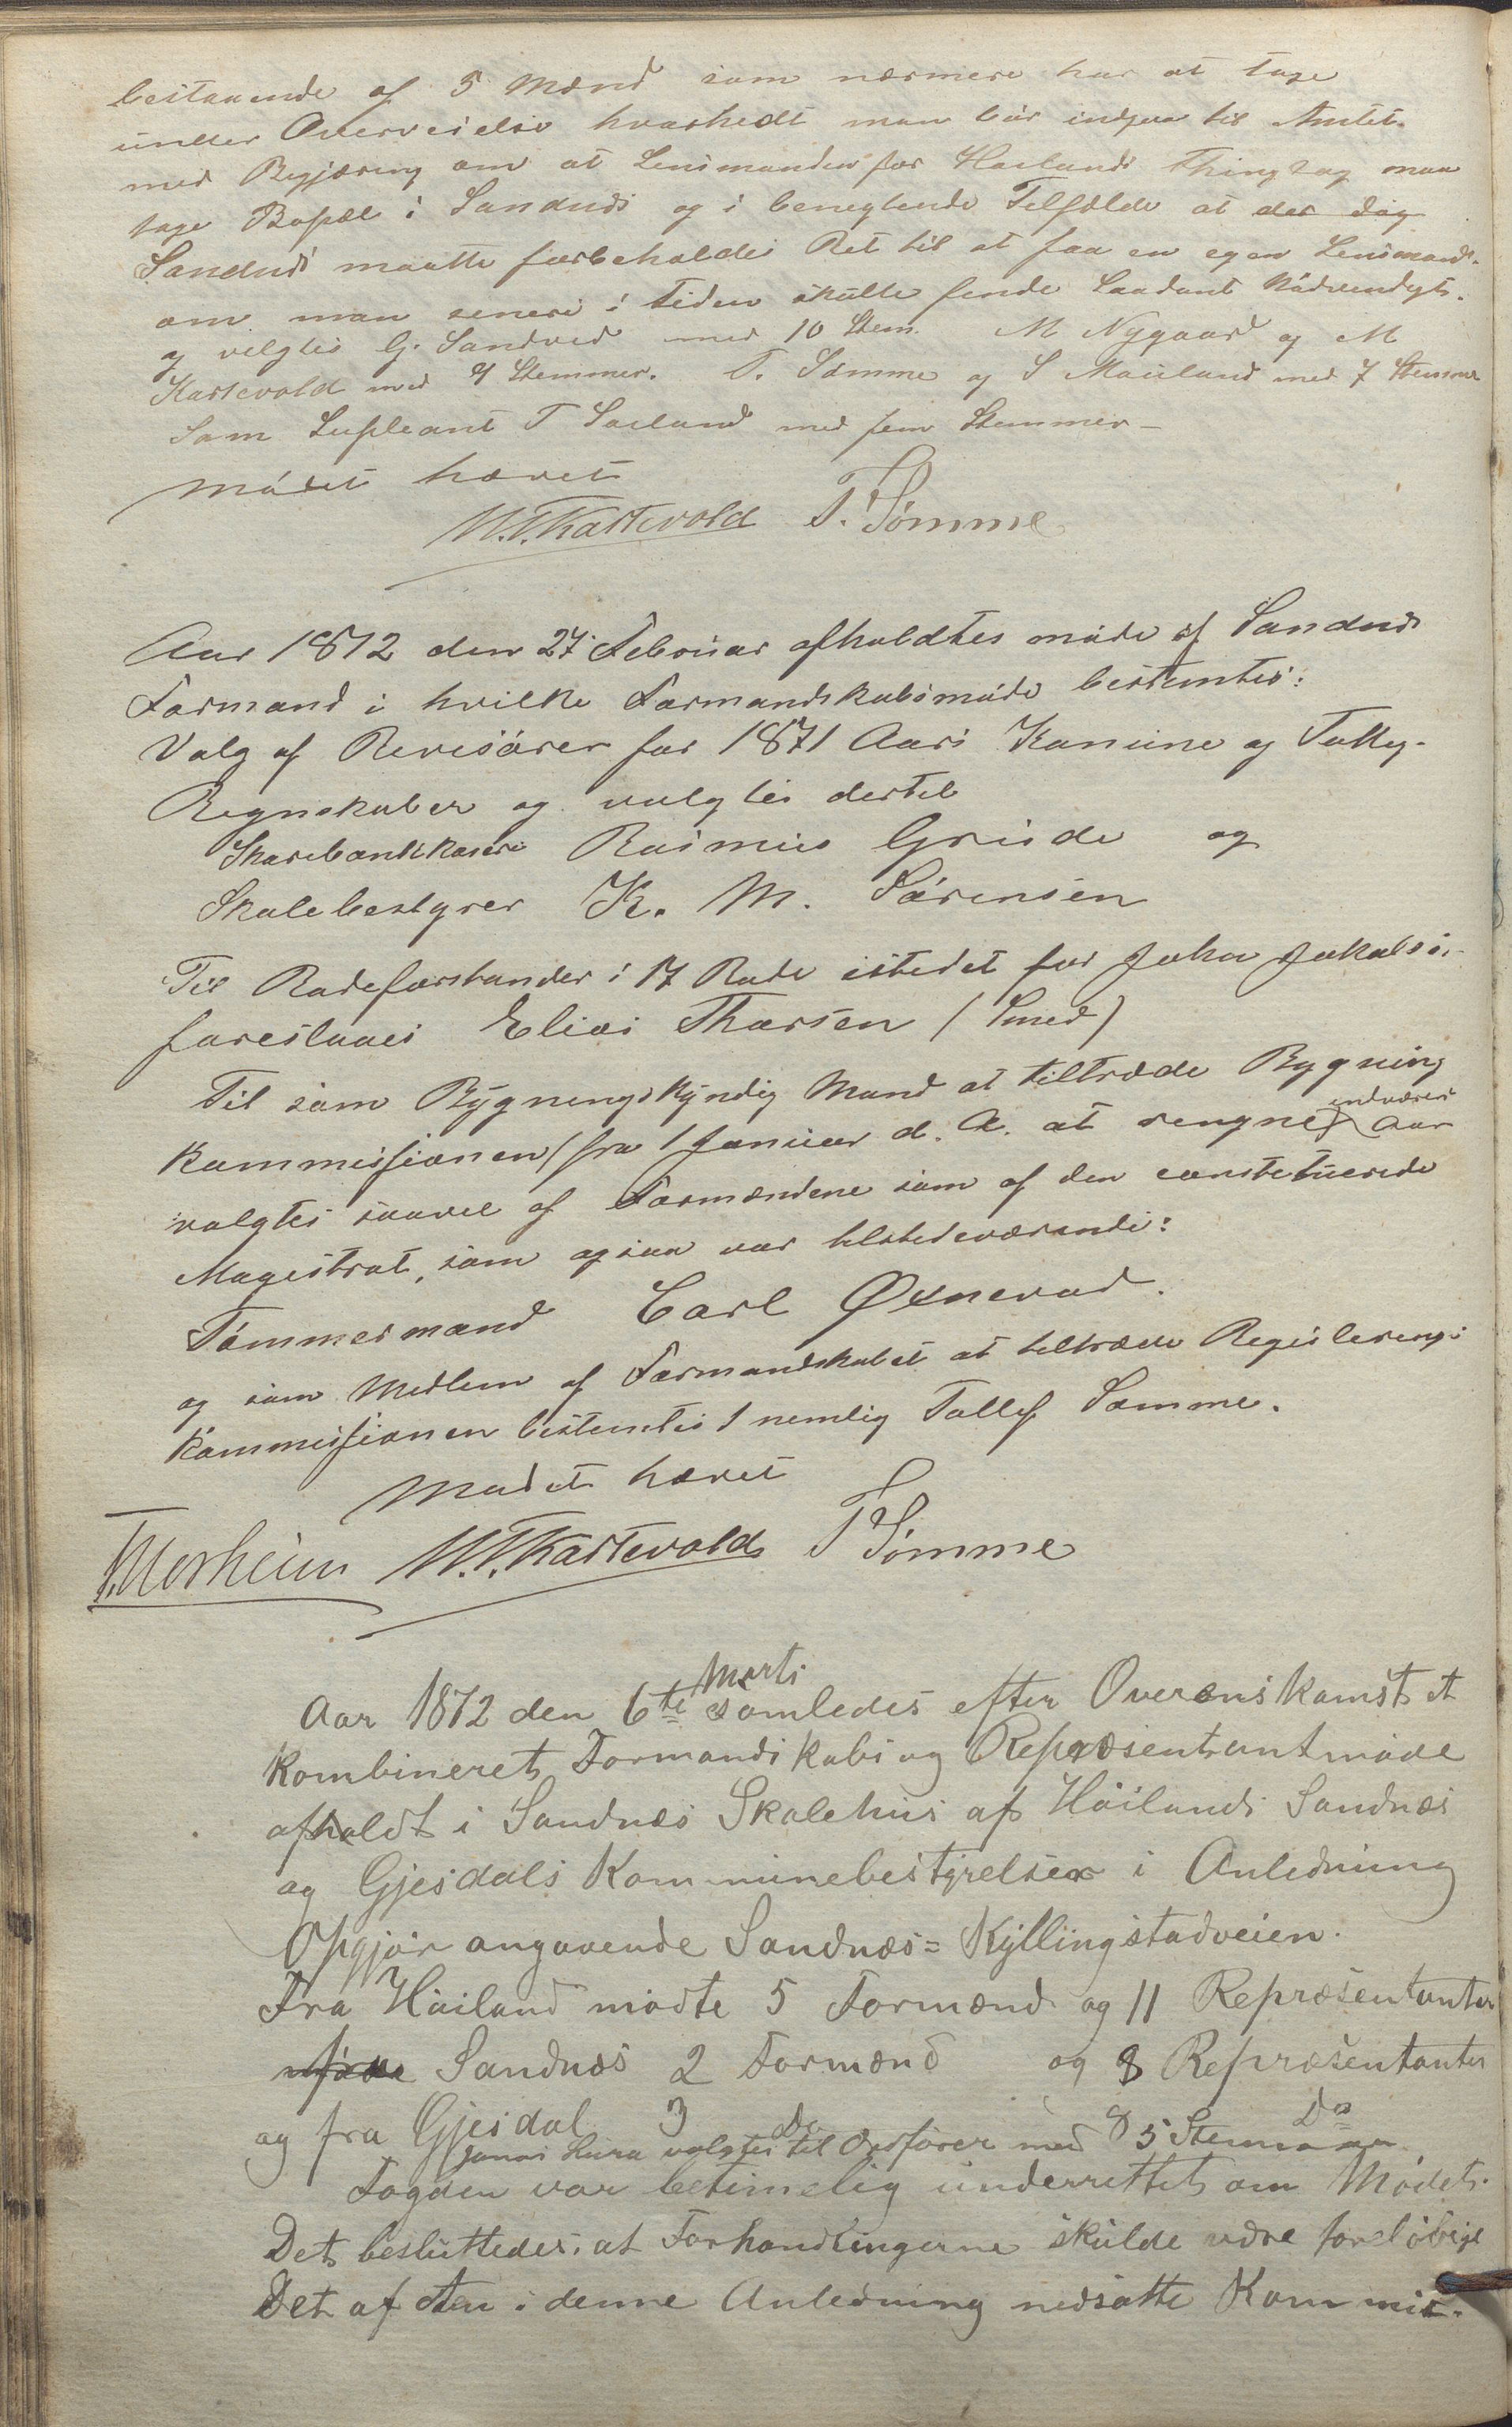 bestaaende af 5 Mænd som nærmere har at tage
under Overveielse hvorhedt man bør indgaa til Amtet
med Begjæring om at Lensmanden for Høilands Thinglag maa
tage Bopæl i Sandnds og i benegtende Telfælde at der dog
Sandnds maatte forbeholdes Ret til at faa en egen Lensmand
om man senere i Tiden skulle finde saadant Nødvendigt.
og velgtes G. Sandved med 10 Stem. M Nygaard og M
Kartevold med 9 Stemmer. T. Sømme og S Mauland med 7 Stemmer
Som Supleant T Soeland med fem Stemmer –
Mødet hævet
M.T.Kartevold T. Sømme
Aar 1872 den 27. Februar afholdtes møde af Sandnds
Formand i hvilke Formandskabsmøde bestemtes:
Valg af Revisører for 1871 Aars Komune og Fattig-
Regnskaber og valgtes dertil
Sparebankkaserer Rasmus Grude og
Skolebestyrer K. M. Sørensen
Til Rodeforstander i 17 Rode istedet for John Jakobs.
foreslaaes Elias Thorsen (Smed)
Til som Bygningskyndig Mand at tiltræde Bygning
kommissionen (fra 1 Januar d. A. at rengnet) Aar
valgtes saavel af Formændene som af den constetuerede
Magistrat, som ogsaa var tilstedeværende:
Tømmermand Carl Øxnevad.
og som Medlem af Formandskabet at teltræde Regulerings
kommissionen bestemtes 1 nemlig Tollef Sømme.
Mødet hævet
T. Morheim M.T.Kartevold T Sømme
Marts
Aar 1872 den 6te samledes efter Overenskomst et
kombineret Formandskabs og Repræsentantmøde
afholdt i Sandnæs Skolehus af Høilands Sandnæs
og Gjesdals Kommunebestyrelser i Anledning
Opgjør angaaende Sandnæs= Kyllingstadveien.
Fra Høiland mødte 5 Formænd og 11 Repræsentanter
fra Sandnæs 2 Formænd og 8 Repræsentanter
og fra Gjesdal 3 Do 8 Do
Jonas Lura valgtes til Ordfører med 5 Stemmer
Fogden var betimelig underrettet om Mødet.
Det besluttedes, at Forhandlingerne skulde være foreløbige
Det af den i denne Anledning nedsatte Kommis-